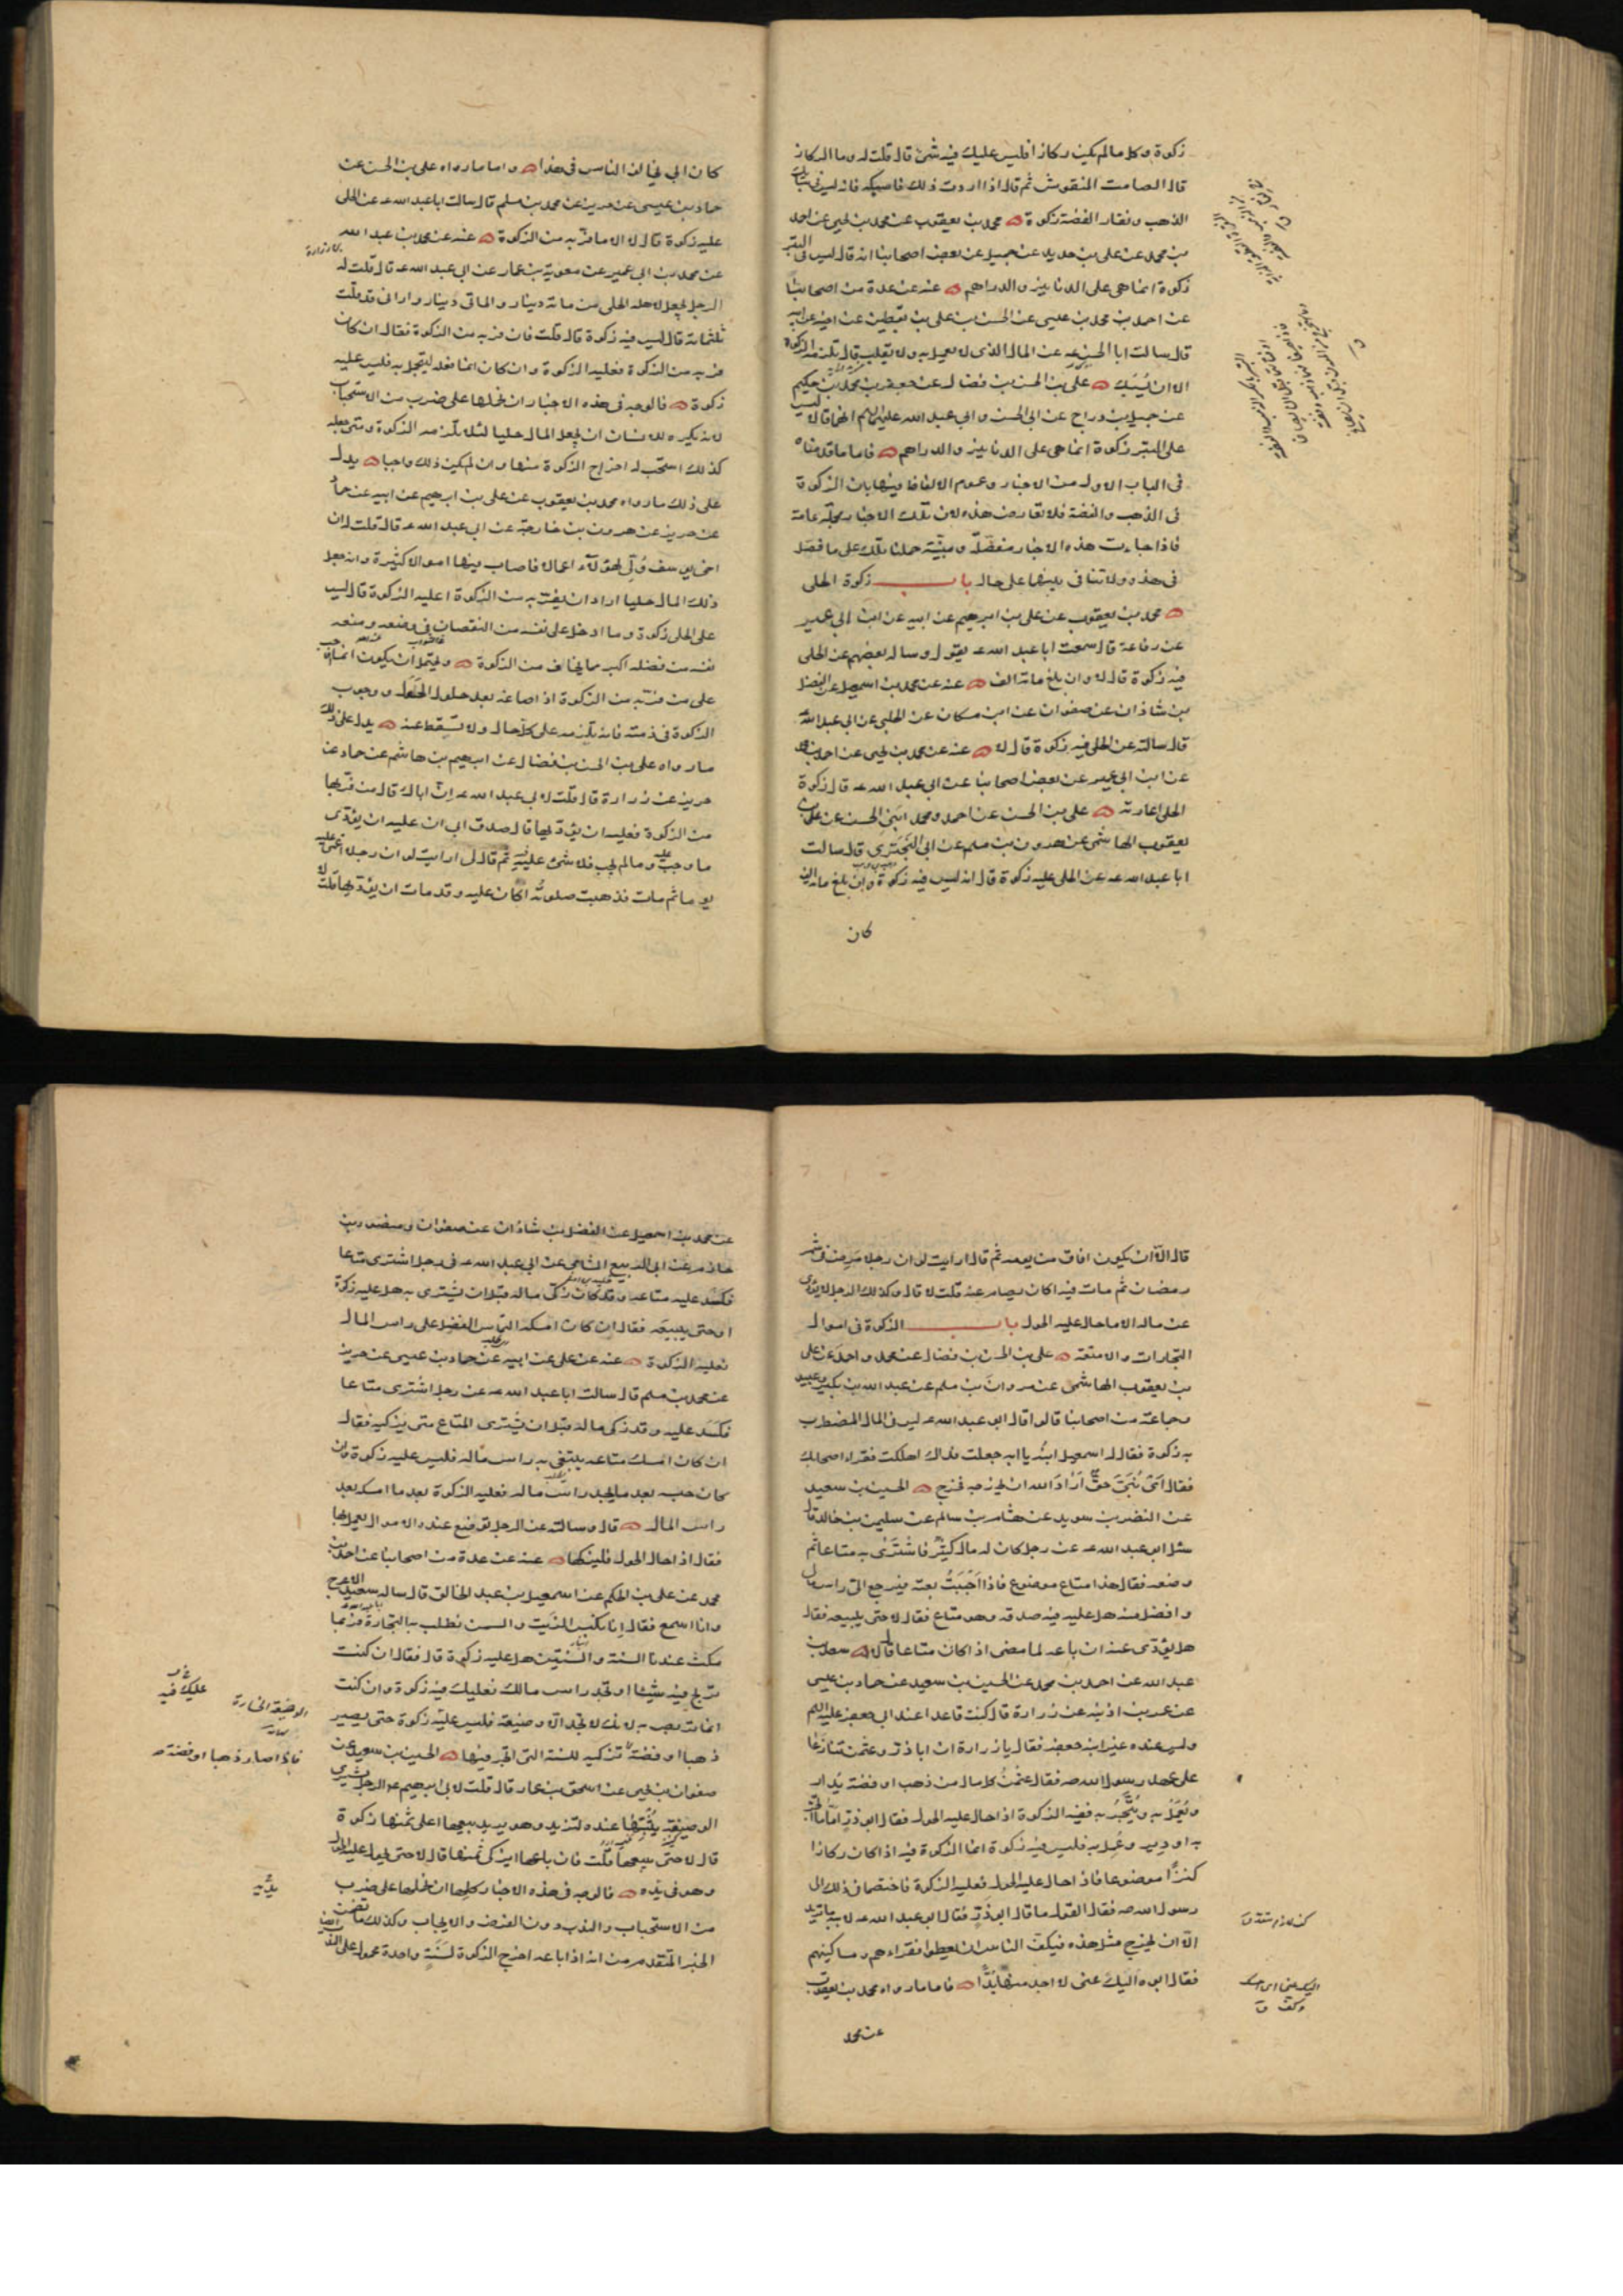 زكوة وكل مالم يكن ركازا فليس عليك فيه شئ قال قلت له وما الركاز
قال الصامت المنقوش ثم قال اذا اردت ذلك فاسبكه فانه ليس في سبائك
الذهب ونقار الفضة زكوة محمد بن يعقوب عن محمد بن يحيى عن احمد
بن محمد عن على بن حديد عن جميل عن بعض اصحابنا انه قال ليس في التبر
زكوة انما هى على الدنانير والدراهم عنه عن عدة من اصحابنا
عن احمد بن محمد بن عيسى عن الحسن بن على بن يقطين عن اخيه عن ابيه
قال سالت ابا الحسن عه عن المال الذى لا يعمل به ولا يقلب قال تلزمه الزكوة
الا ان يُسْبَك على بن الحسن بن فضال عن جعفر بن محمد بن حكيم
عن جميل بن دراج عن ابى الحسن وابى عبد الله عليهما السلم انهما قالا ليس
على التبر زكوة انما هى على الدنانير والدراهم فاما ما قدمناه
فى الباب الاول من الاخبار وعموم الالفاظ فيها بان الزكوة
فى الذهب والفضة فلا تعارض هذه لان تلك الاخبار مجملة عامة
فاذا جاءت هذه الاخبار مفصّلة ومبيّنة حملنا تلك على ما فصّل
فى هذه ولا تنافى بينها على حال باب زكوة الحلى
محمد بن يعقوب عن على بن ابرهيم عن ابيه عن ابن ابى عمير
عن رفاعة قال سمعت ابا عبد الله عه يقول وساله بعضهم عن الحلى
فيه زكوة قال لا وان بلغ مائة الف عنه عن محمد بن اسمعيل عن الفضل
بن شاذان عن صفوان عن ابن مسكان عن الحلبى عن ابى عبد الله
قال سالته عن الحلى فيه زكوة قال لا عنه عن محمد بن يحيى عن احمد بن محمد
عن ابن ابى عمير عن بعض اصحابنا عن ابى عبد الله عه قال زكوة
الحلى اعارته على بن الحسن عن احمد ومحمد ابنى الحسن عن على بن
يعقوب الهاشمى عن هرون بن مسلم عن ابى البخترى قال سالت
ابا عبد الله عه عن الحلى عليه زكوة قال انه ليس فيه زكوة وان بلغ مائة الف
كان
كان ابى يخالف الناس فى هذا واما ما رواه على بن الحسن عن
حماد بن عيسى عن حريز عن محمد بن مسلم قال سالت ابا عبد الله عه عن الحلى
عليه زكوة قال لا الا ما فرّ به من الزكوة عنه عن محمد بن عبد الله
عن محمد بن ابى عمير عن معوية بن عمار عن ابى عبد الله عه قال قلت له
الرجل يجعل لاهله الحلى من مائة دينار والمأتى دينار وارانى قد قلت
ثلثمائة قال ليس فيه زكوة قال قلت فان فرّ به من الزكوة فقال ان كان
فرّ به من الزكوة فعليه الزكوة وان كان انما فعله ليتجمل به فليس عليه
زكوة فالوجه فى هذه الاخبار ان نحملها على ضرب من الاستحباب
لانه يكره للانسان ان يجعل المال حليا لئلا تلزمه الزكوة ومتى جعله
كذلك استحب له اخراج الزكوة منها وان لم يكن ذلك واجبا يدل
على ذلك ما رواه محمد بن يعقوب عن على بن ابرهيم عن ابيه عن حماد
عن حريز عن هرون بن خارجة عن ابى عبد الله عه قال قلت له ان
اخى يوسف وُلّى لهؤلآء اعمالا فاصاب فيها اموالا كثيرة وانه جعل
ذلك المال حليا اراد ان يفرّ به من الزكوة اعليه الزكوة قال ليس
على الحلى زكوة وما ادخل على نفسه من النقصان فى وضعه ومنعه
نفسه من فضله اكبر مما يخاف من الزكوة ويحتمل ان يكون انما وجب
على من فرّ به من الزكوة اذا صاغه بعد حلول الحول ووجوب
الزكوة فى ذمته فانه تلزمه على كل حال ولا تسقط عنه يدل على ذلك
ما رواه على بن الحسن بن فضال عن ابرهيم بن هاشم عن حماد عن
حريز عن زرارة قال قلت لابى عبد الله عه انّ اباك قال من فرّ بها
من الزكوة فعليه ان يؤديها قال صدق ابى ان عليه ان يؤدى
ما وجب عليه وما لم يجب فلا شئ عليه فيه ثم قال لى ارايت لو ان رجلا اغمى عليه
يوما ثم مات فذهبت صلوته اكان عليه وقد مات ان يؤديها قلت لا
قال الّا ان يكون افاق من يومه ثم قال ارايت لو ان رجلا مرض فى شهر
رمضان ثم مات فيه اكان يصام عنه قلت لا قال وكذلك الرجل لا يؤدى
عن ماله الا ما حال عليه الحول باب الزكوة فى اموال
التجارات والامتعة على بن الحسن بن فضال عن محمد واحمد عن على
بن يعقوب الهاشمى عن مروان بن مسلم عن عبد الله بن بكير وعبيد
وجماعة من اصحابنا قالوا قال ابو عبد الله عه ليس فى المال المضطرب
به زكوة فقال له اسمعيل ابنُه يا ابه جعلت فداك اهلكت فقراء اصحابك
فقال اى بُنىّ حقٌّ اَرَادَ الله ان يخرجه فخرج الحسين بن سعيد
عن النضر بن سويد عن هشام بن سالم عن سليمن بن خالد قال
سئل ابو عبد الله عه عن رجل كان له مال كثير فاشترى به متاعا ثم
وضعه فقال هذا متاع موضوع فاذا احببت بعته فيرجع الىّ راس مالى
وافضل منه هل عليه فيه صدقة وهو متاع فقال لا حتى يبيعه فقال
هل يؤدى عنه ان باعه لما مضى اذا كان متاعا قال لا سعد بن
عبد الله عن احمد بن محمد عن الحسين بن سعيد عن حماد بن عيسى
عن عمر بن اذينه عن زرارة قال كنت قاعدا عند ابى جعفر عليه السلم
وليس عنده غير ابنه جعفر فقال يا زرارة ان ابا ذر وعثمن تنازعا
على عهد رسول الله صه فقال عثمنُ كل مال من ذهب او فضة يُدار
ويُعمل به ويُتّجرُ به ففيه الزكوة اذا حال عليه الحول فقال ابو ذر امّا ما اتجر
به او دير وعُمل به فليس فيه زكوة انما الزكوة فيه اذا كان ركازا
كنزًا موضوعا فاذا حال عليه الحول فعليه الزكوة فاختصما فى ذلك الى
رسول الله صه فقال القول ما قال ابو ذرّ فقال ابو عبد الله عه لابيه ما تريد
الّا ان يخرج مثل هذه فيكفّ الناس ان يعطوا فقراءهم ومساكينهم
فقال ابوه اليك عنى لا اجد منها بُدًّا فاما ما رواه محمد بن يعقوب
عن محمد
عن محمد بن اسمعيل عن الفضل بن شاذان عن صفوان ومنصور بن
حازم عن ابى الربيع الشامى عن ابى عبد الله عه فى رجل اشترى متاعا
فكسد عليه متاعه وقد كان زكّى ماله قبل ان يشترى به هل عليه زكوة
او حتى يبيعه فقال ان كان امسكه التماس الفضل على راس المال
فعليه الزكوة عنه عن على عن ابيه عن حماد بن عيسى عن حريز
عن محمد بن مسلم قال سالت ابا عبد الله عه عن رجل اشترى متاعا
فكسد عليه وقد زكى ماله قبل ان يشترى المتاع متى يزكيه فقال
ان كان امسك متاعه يبتغى به راس ماله فليس عليه زكوة وان
كان حبسه بعد ما يجد راس ماله فعليه الزكوة بعد ما امسكه بعد
راس المال قال وسالته عن الرجل توضع عنده الاموال يعمل بها
فقال اذا حال الحول فليزكها عنه عن عدة من اصحابنا عن احمد بن
محمد عن على بن الحكم عن اسمعيل بن عبد الخالق قال ساله سعيد الاعرج
وانا اسمع فقال انا نكبس الزيت والسمن نطلب به التجارة فربما
مكث عندنا السنة والسنتين هل عليه زكوة قال فقال ان كنت
تربح فيه شيئا او تجد راس مالك فعليك فيه زكوة وان كنت
انما تربص به لانك لا تجد الّا وضيعة فليس عليك زكوة حتى يصير
ذهبا او فضة تزكيه للسنة التى اتّجر فيها الحسين بن سعيد عن
صفوان بن يحيى عن اسحق بن عمار قال قلت لابى ابرهيم عه الرجل يشترى
الوصيفة يُثبتها عنده لتزيد وهو يريد بيعها اعلى ثمنها زكوة
قال لا حتى يبيعها قلت فان باعها ايزكى ثمنها قال لا حتى يحول عليه الحول
وهو فى يده فالوجه فى هذه الاخبار كلها ان نحملها على ضرب
من الاستحباب والندب دون الفرض والايجاب وكذلك ما تضمن
الخبر المتقدم من انه اذا باعه اخرج الزكوة لسنةٍ واحدة محمول على
عليك فيه
الوضيعة الخسارة
فاذا صار ذهبا او فضة